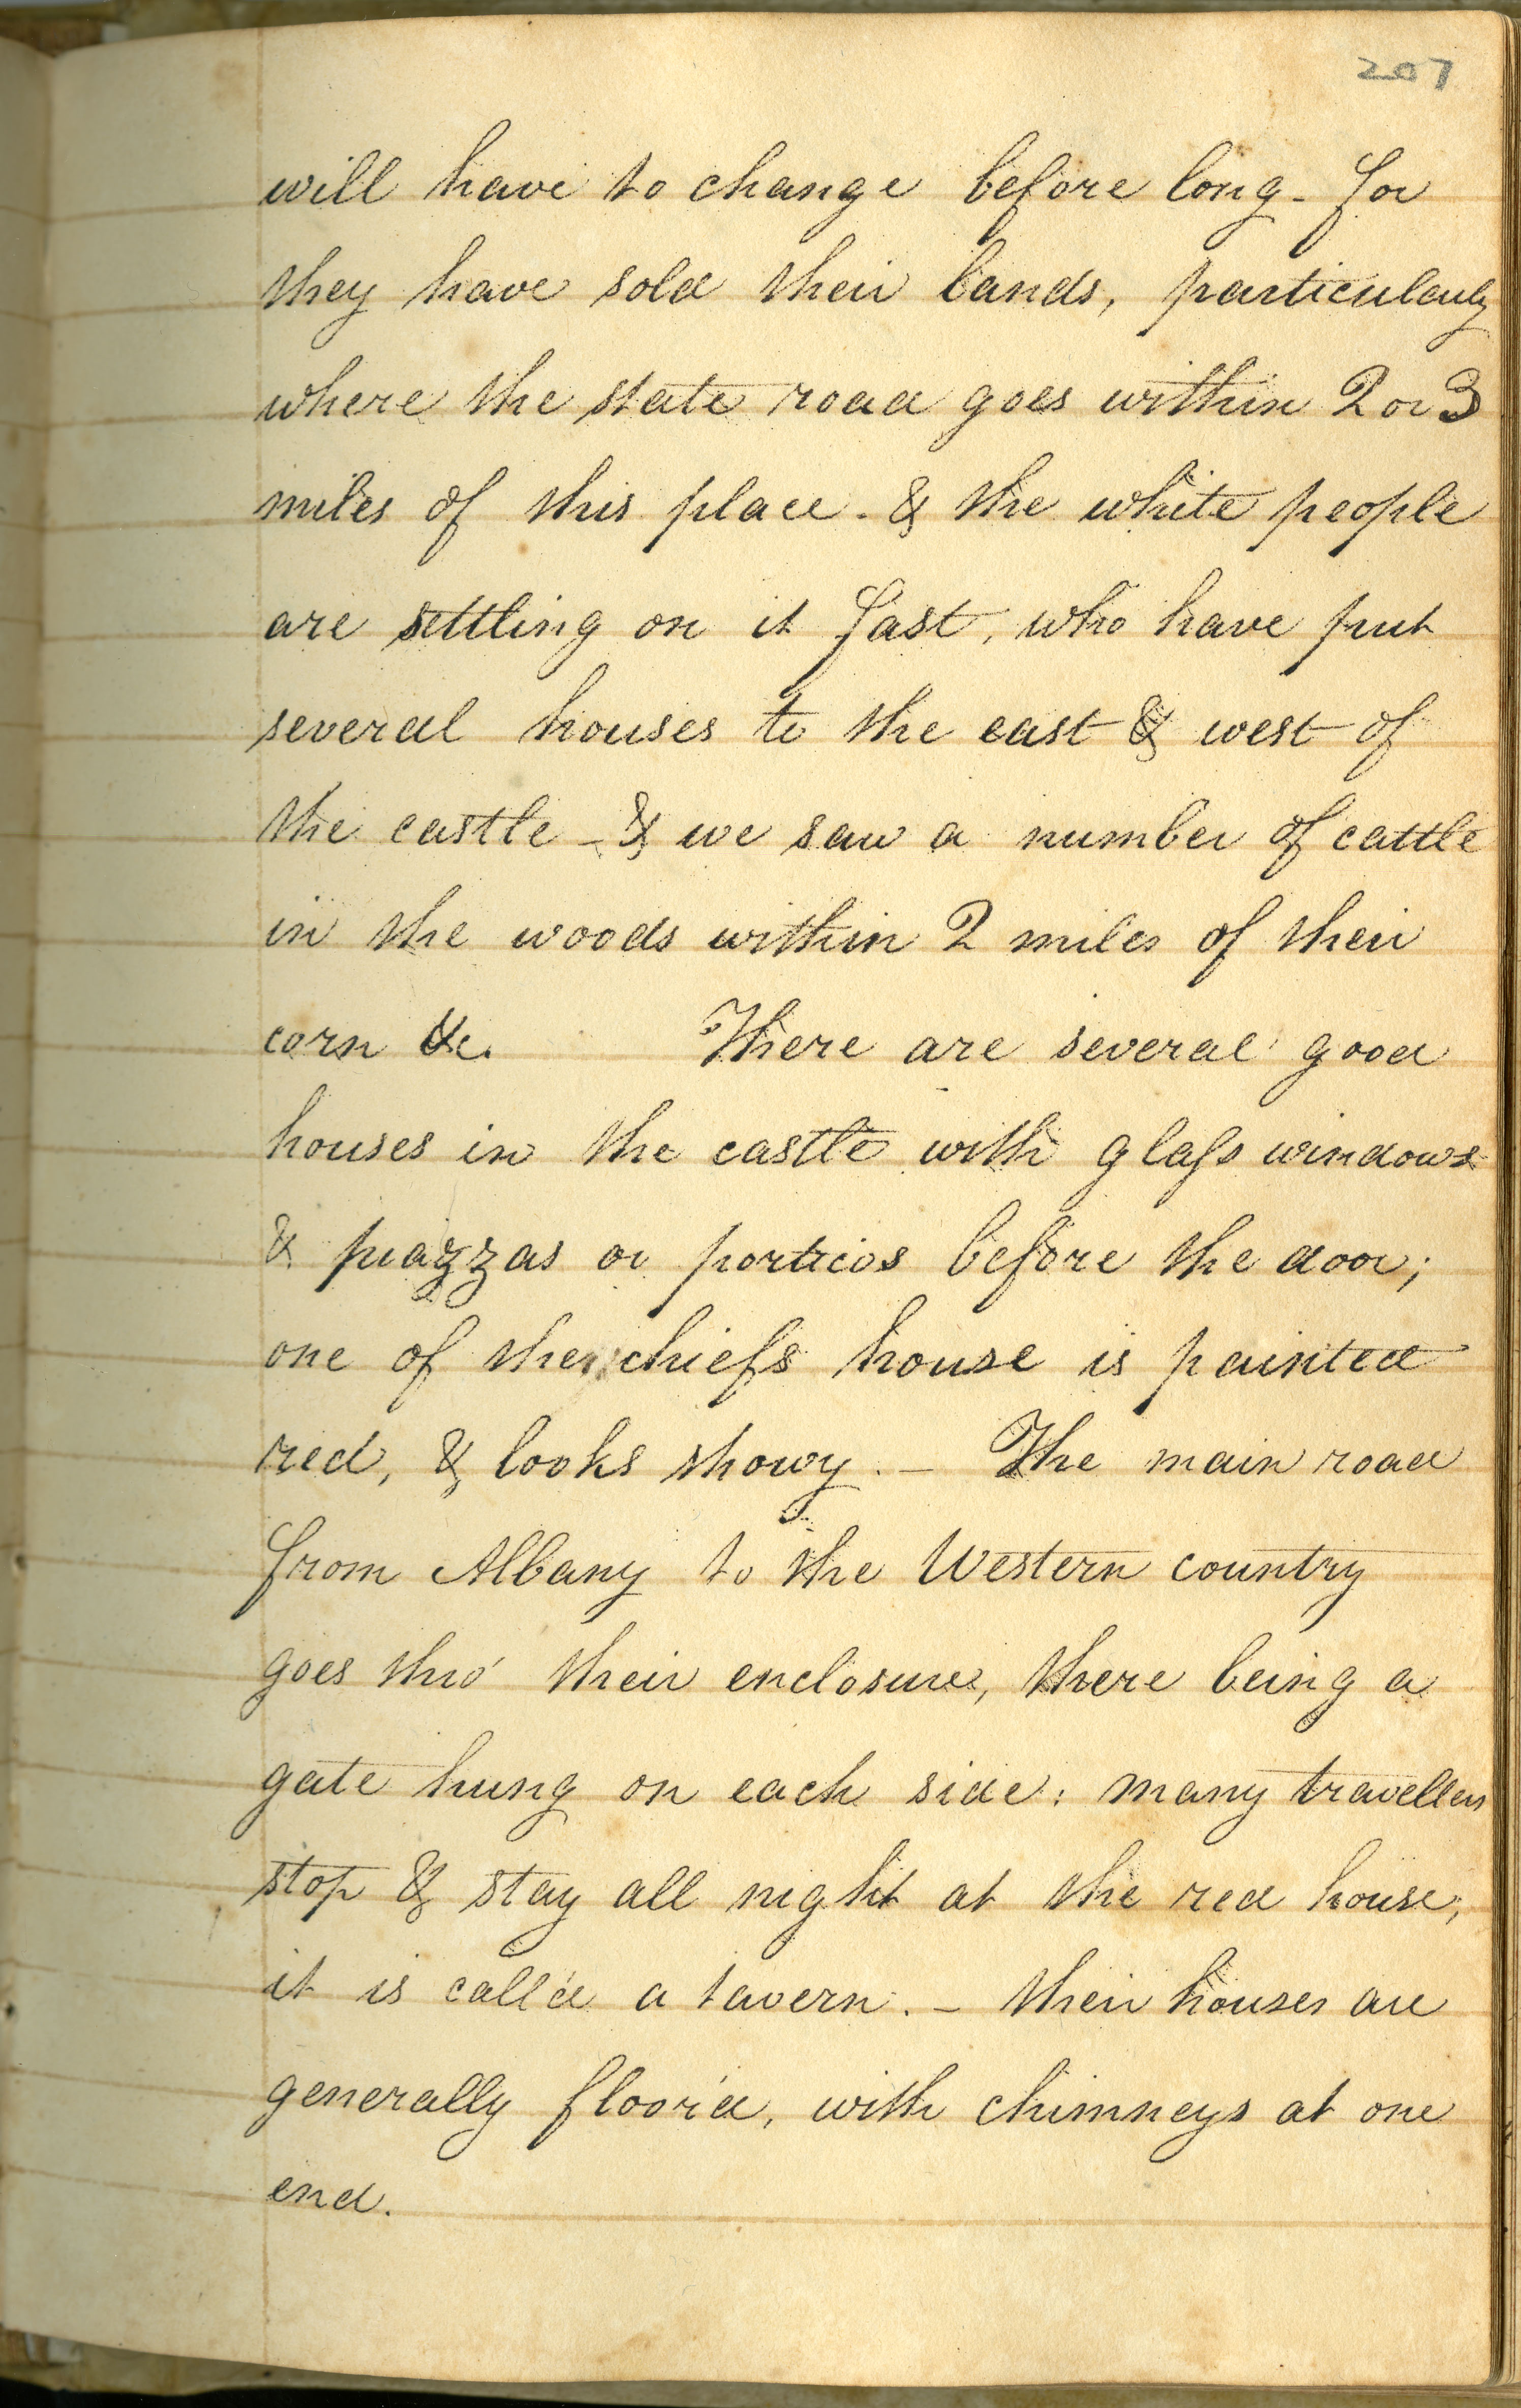 207
will have to change before long - for
they have sold their lands, particularly
where the state road goes within 2 or 3
miles of this place - & the white people
are settling on it fast, who have put
several houses to the east & west of
the castle - & we saw a number of cattle
in the woods within 2 miles of their
corn &c. There are several good
houses in the castle with glass windows
& piazzas or porticos before the door;
one of the chiefs house is painted
red, & looks showy. - The main road
from Albany to the Western country
goes thro' their enclosure, there being a
gate hung on each side: many travellers
stop & stay all night at the red house,
it is call'd a tavern. - their houses are
generally floor'd, with chimneys at one
end.